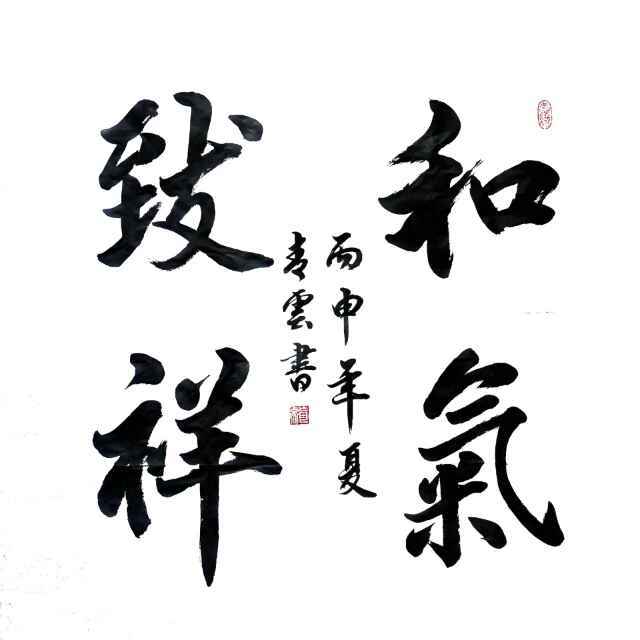 和氣
致祥
丙申年夏
青雲書